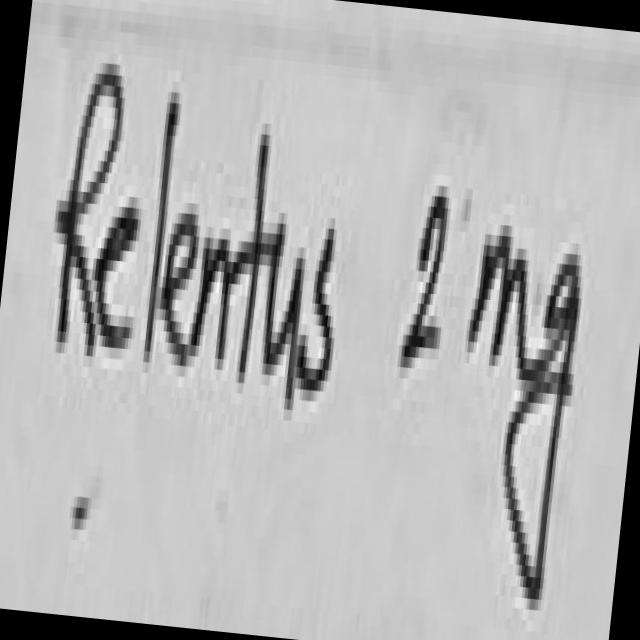 Relentus 2 mg